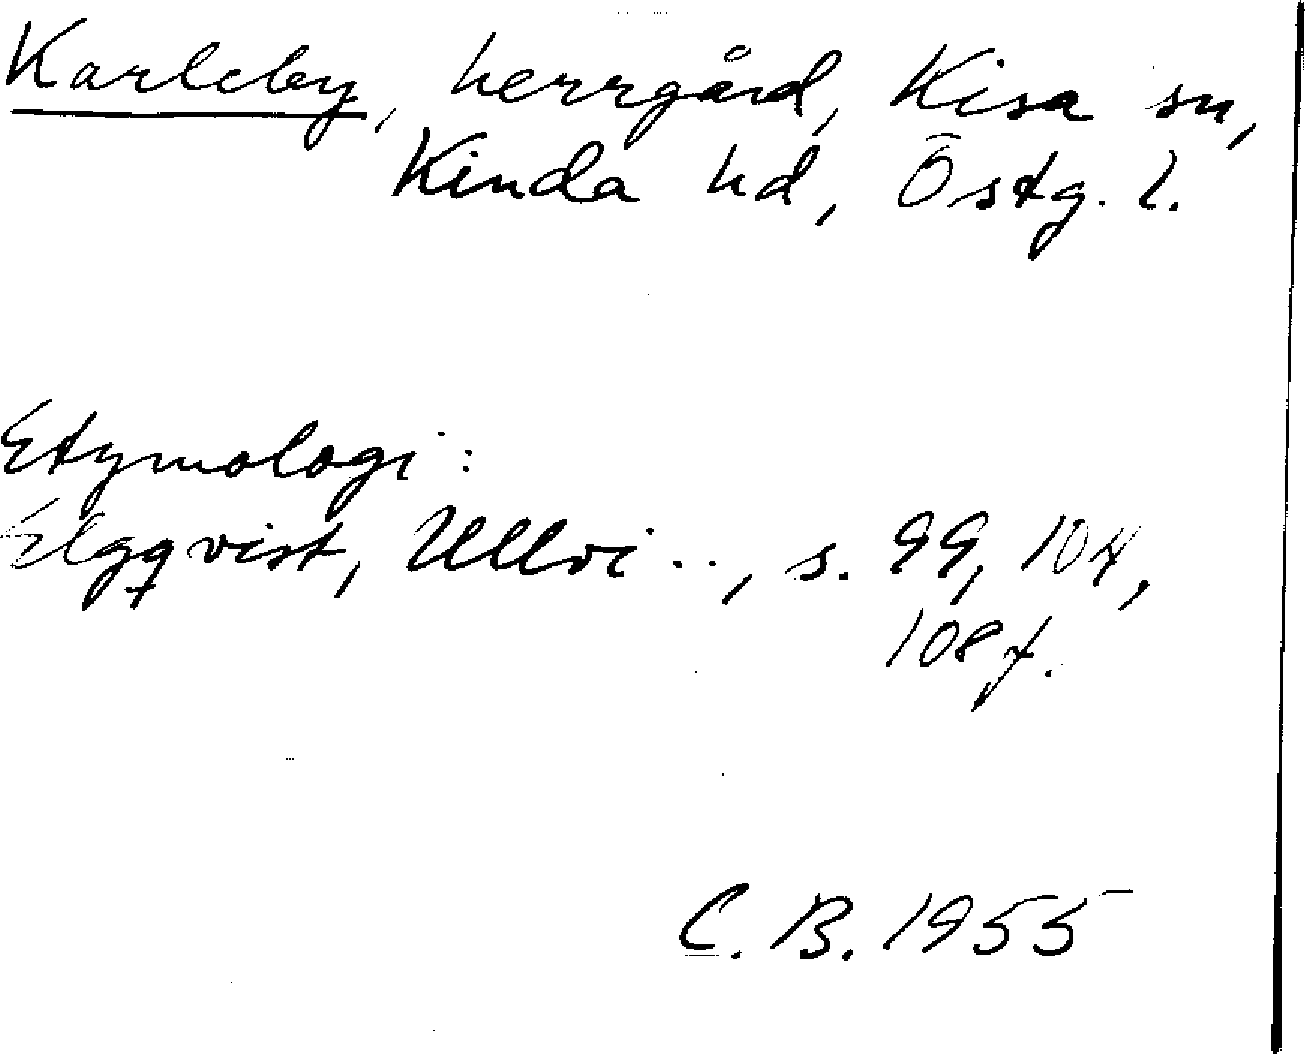 Karleby, herrgård, Kisa sn,
Kinda hd, Östg. l.
Etymologi:
Elgqvist, Ullvi .., s. 99, 104,
108 f.
C. B. 1955